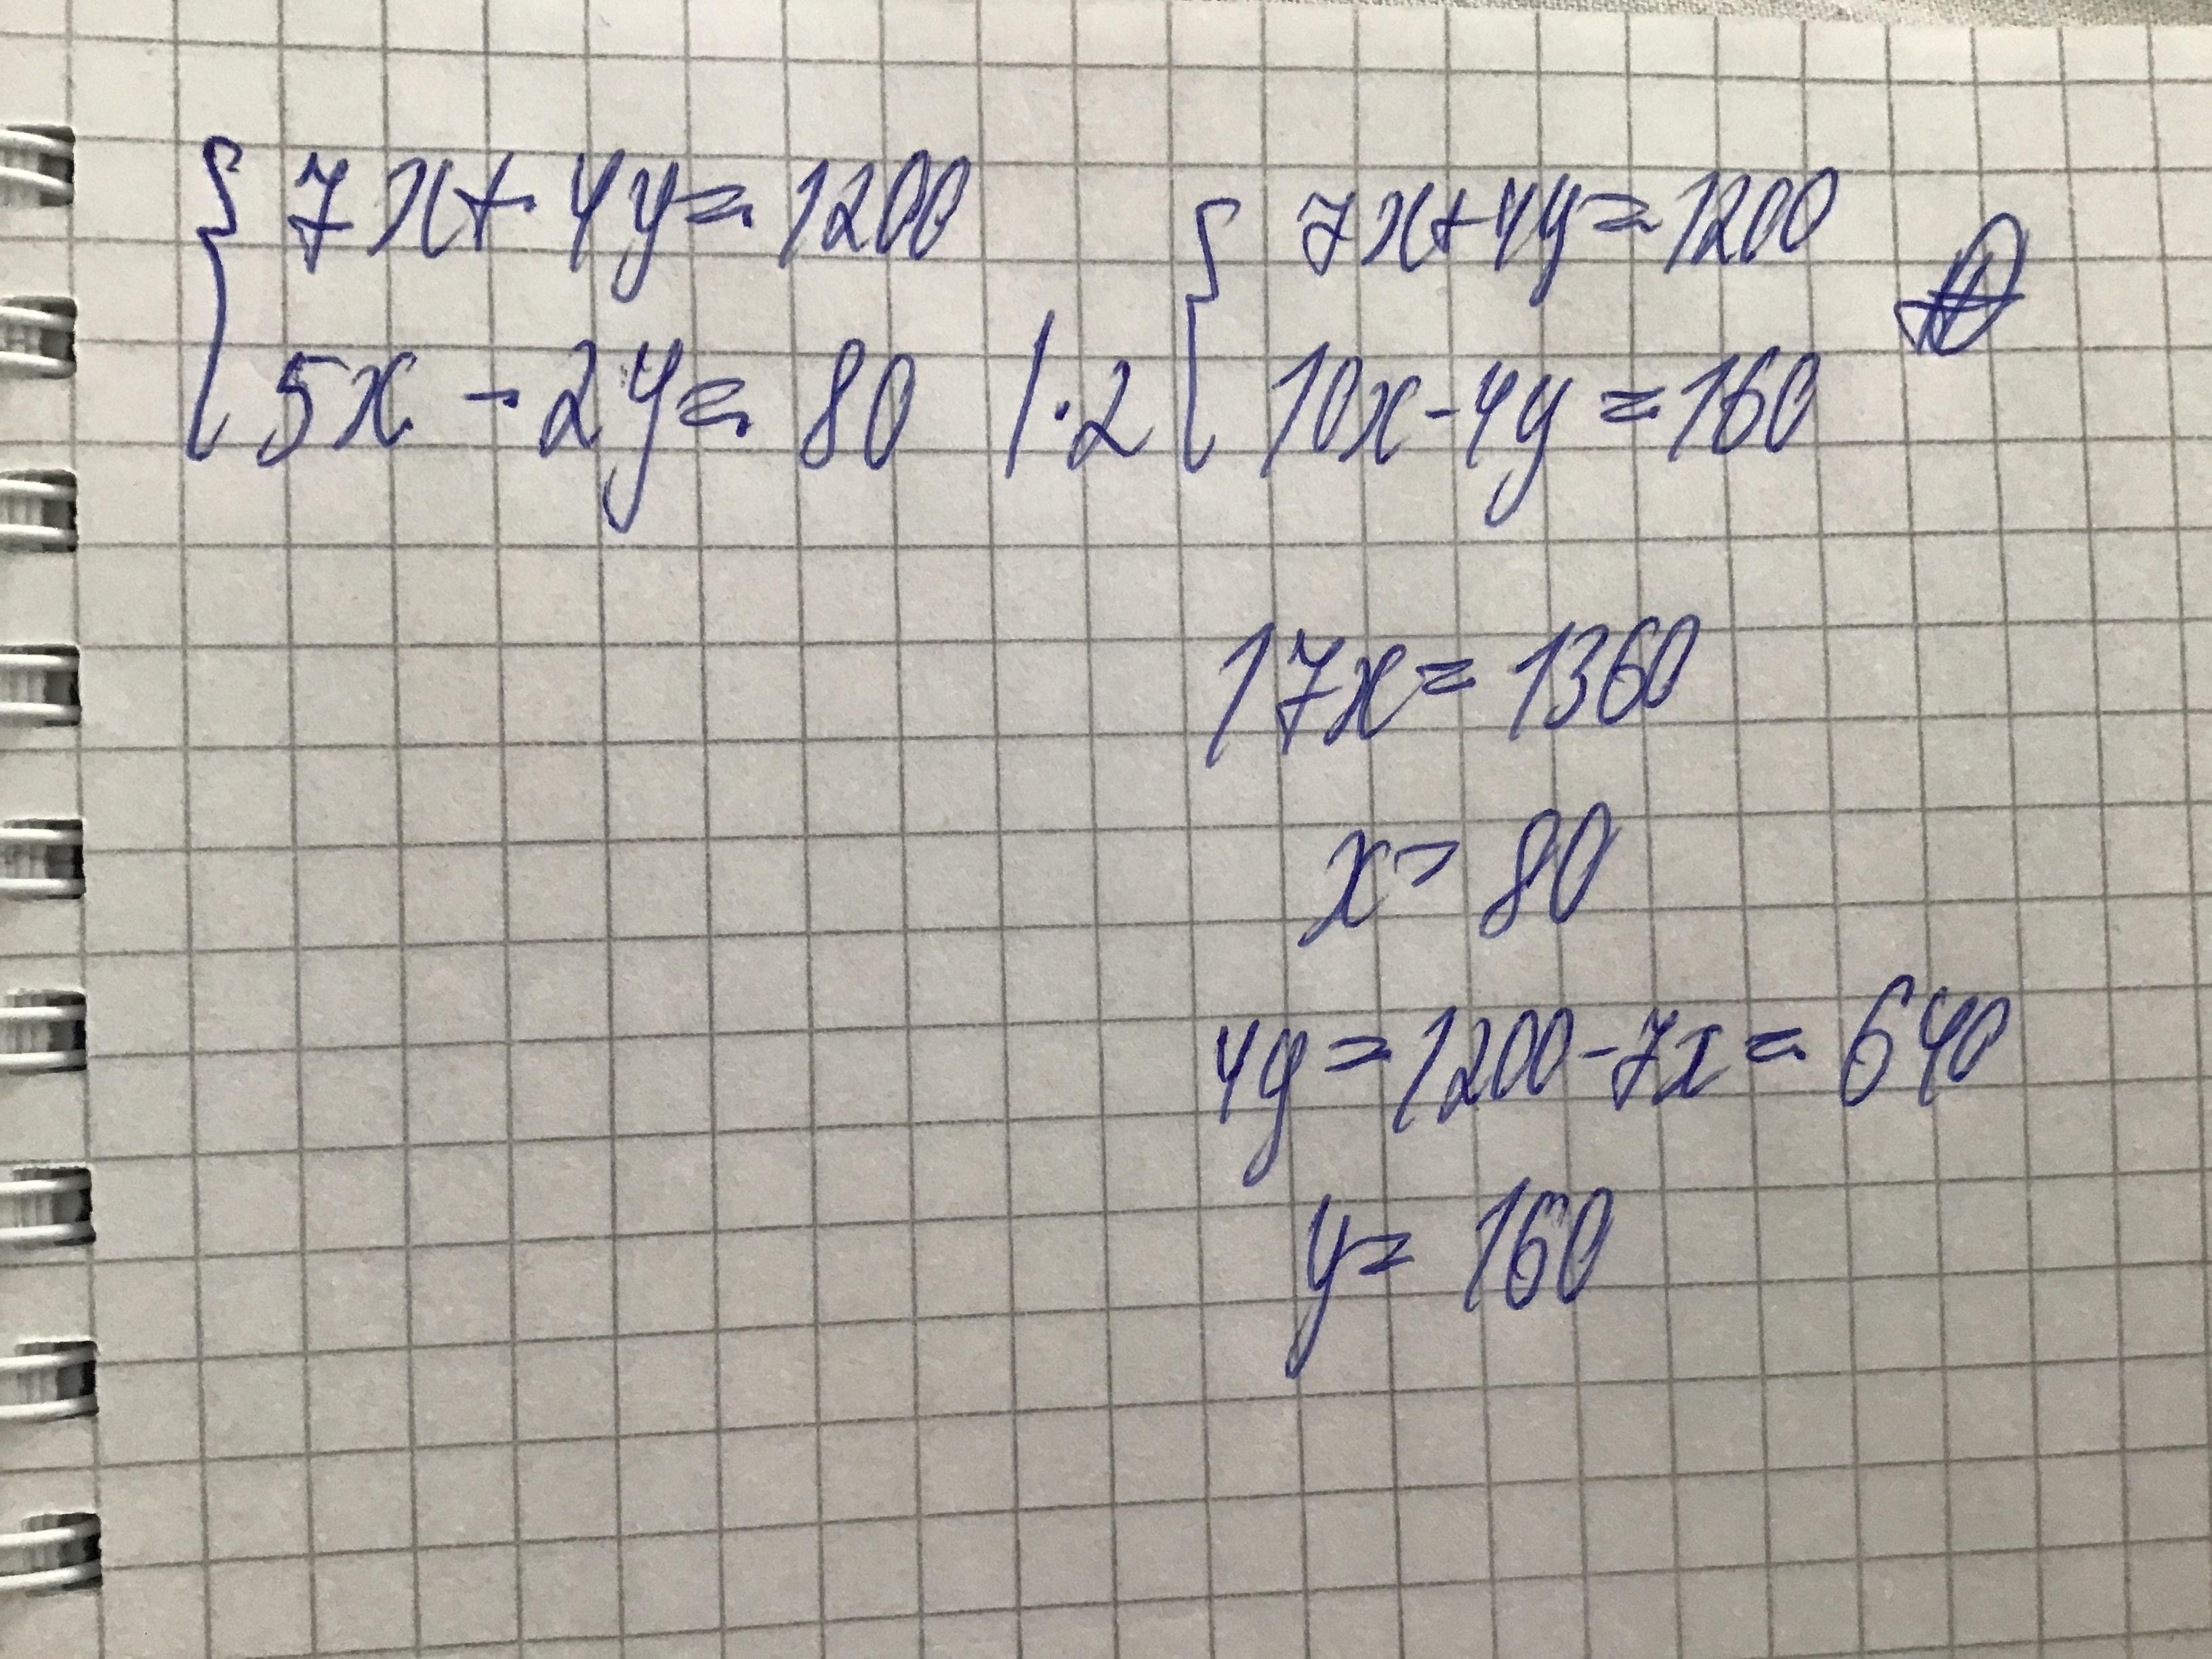 { 7x + 4y = 1200 { 7x + 4y = 1200 ⊕
5x - 2y = 80 | · 2 10x - 4y = 160
17x = 1360
x = 80
4y = 1200 - 7x = 640
y = 160